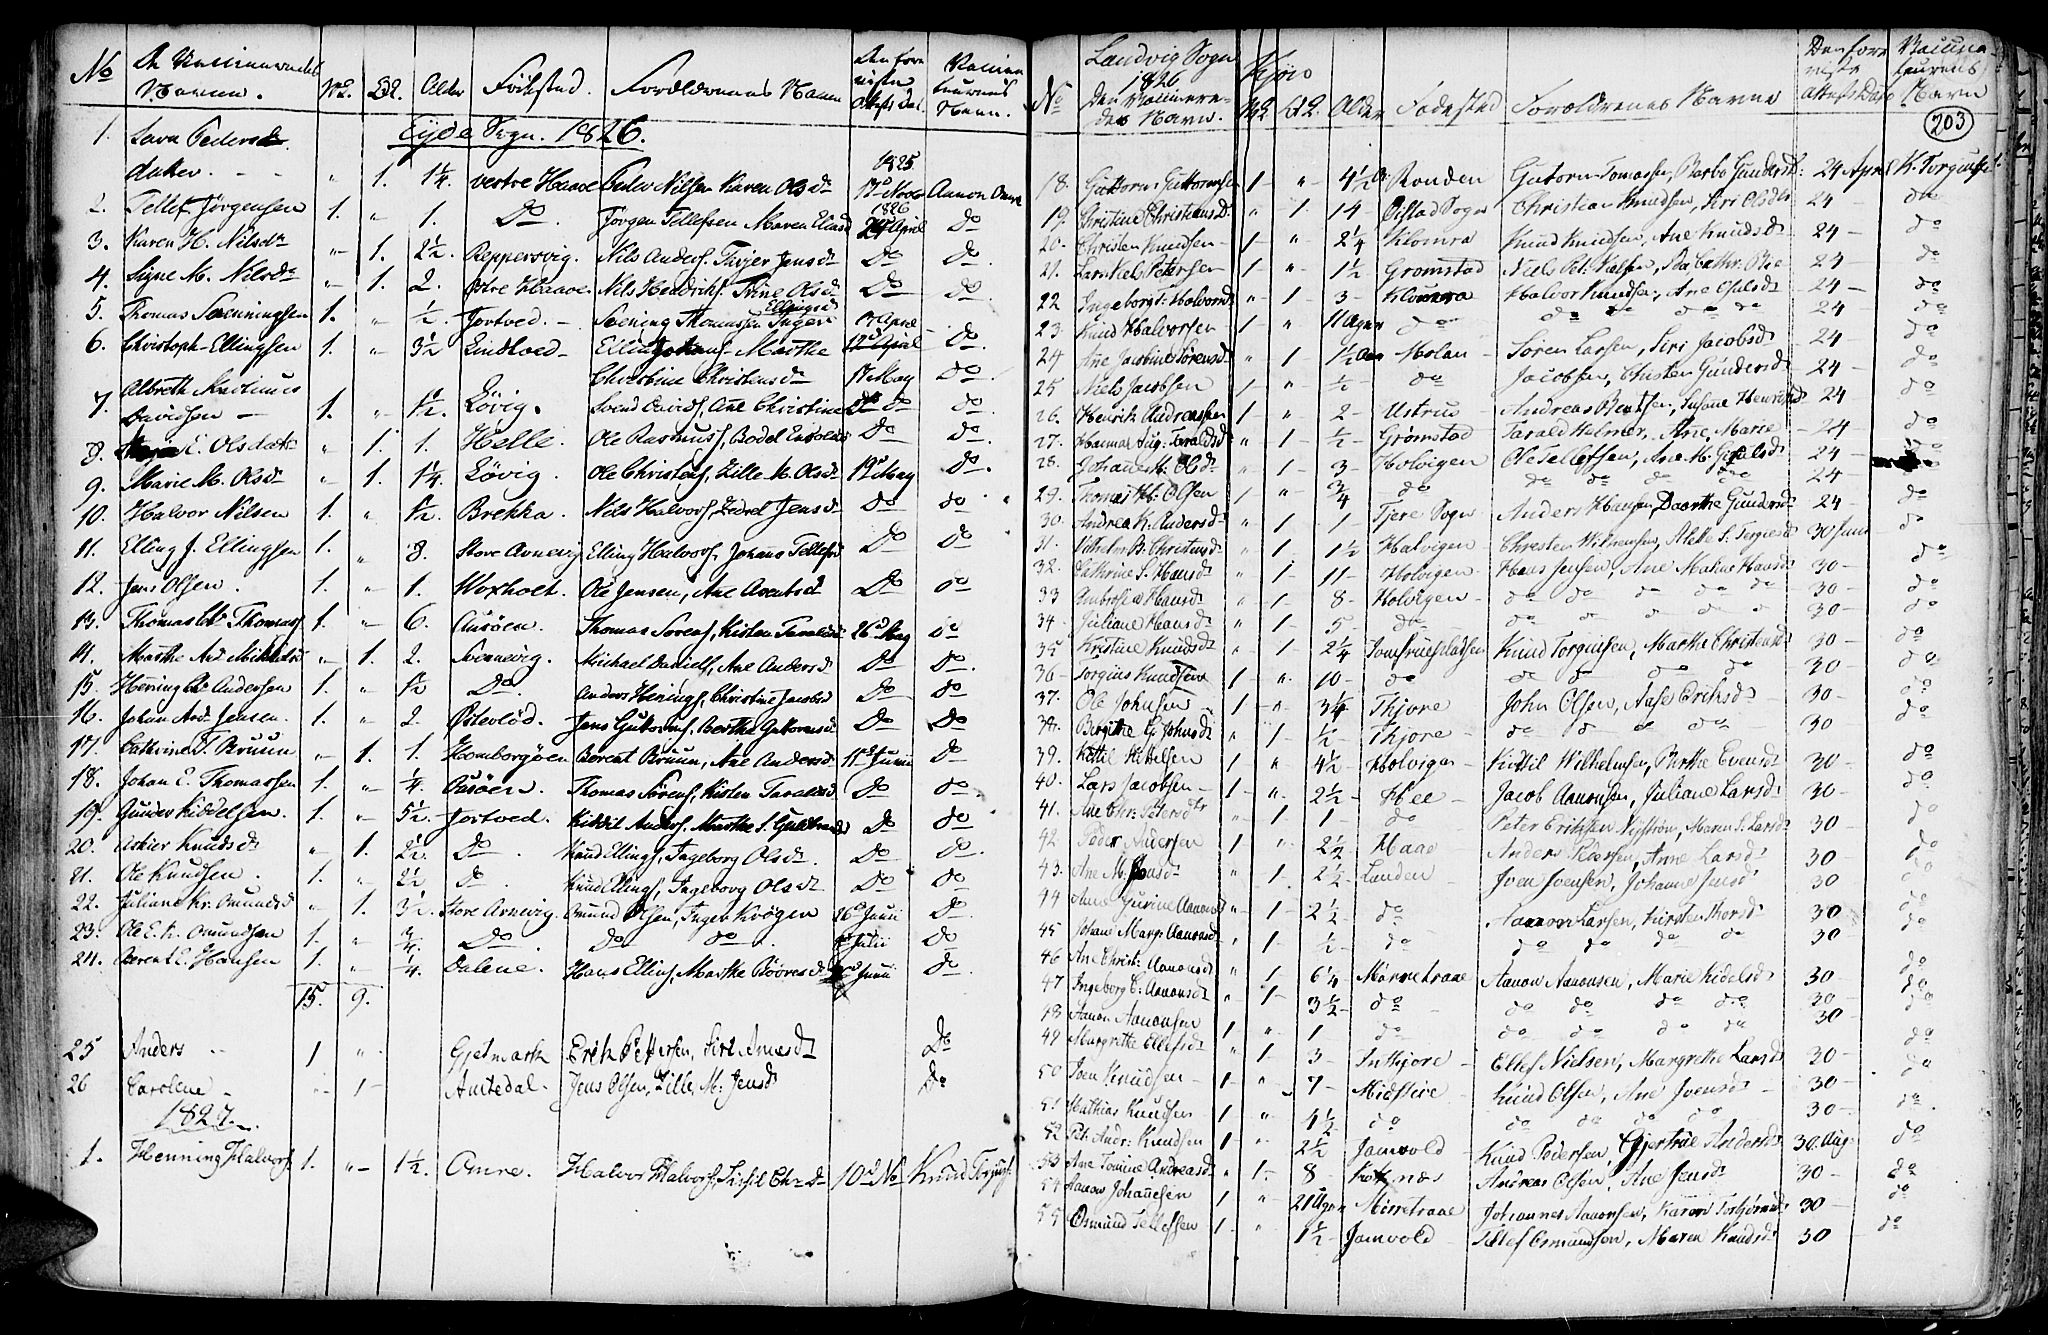 No De Vaccineredes Navne. M.k. Q.k. Alder Födested. Forældrenes Navne Den fore viste Attest Dat. Vaccina teurens Navn.
Eyde Sogn. 1826.
1. Lava Pedersd.
Anker. - - " 1. 1 1/4. vestre Haave Peder Nilsen Karen Olsd 1825 17d Novb Aanon Omre
2. Tellef Jørgensen 1. " 1. Do Jörgen Tellefsen Maren Eliasd 1826 24 April do
3. Karen H. Nilsdr " 1. 2 1/2. Reppersvig. Nils Anders. Torjer Jensdr Do do
4. Signe M. Nilsdr " 1. 2. østre Haave Nils Hendrichs. Trine Olsdr Do do
5. Thomas Sørenningsen 1. " 1/2. Jortved. - Søening Thomassen Inger Ellingsd 17 April do
6. Christoph Ellingsen 1. " 3 1/2 Lindtved - Marthe 12d April do
Christine Christensdr 17 May do
7. Albreth Martinus
Davidsen - 1. " 1 1/2. Lövig. Svend Davids, Ane Christine Do do do
8. E. Olsdatr " 1. 1. Helle. Ole Rasmuss, Bodel Do do
9. Marie M. Olsdr " 1. 1 1/4. Lövig. Ole Christens, Zille M. Olsdr 19d May do
10. Halvor Nilsen 1. " 1 1/2. Brekka. Nils Halvors, Jensdr Do do
11. Elling J. Ellingsen 1. " 8. Store Arnevig Elling Halvors, Johane Tellefsd Do do
12. Jens Olsen. 1. " 1. Voxholt. Ole Jensen, Ane Arentsd Do do
13. Thomas Thomass 1. " 6. Ausöen. Thomas Sorens, Kisten Taraldsd 26d May do
14. Marthe And Mikkelsd " 1. 2. Svennevig. Michael Daniels, Ane Andersd Do do
15. Hening Andersen 1. " 1 1/2 Do Anders Henings, Christine Jacobsd Do do
16. Johan And Jensen. 1. " 2. Østeröd. Jens Guttorms, Berthe Guttormsd Do Do
17. Cathrine T. Bruun " 1. 1. Homborgöen Berent Bruun, Ane Andersd 11d Junii do
18. Johan E. Thomassen 1. " 1/4. Ausöen. Thomas Sörens, Kisten Taraldsd Do do
19. Gunder Kiddelsen. 1. " 5 1/2. Jortved. Kiddil Anders, Marthe S. Do do
20. Askier Knudsdr " 1. 2 1/2. Do Knud Ellings, Ingeborg Olsdr Do do
21. Ole Knudsen. 1. " 2 1/2. do Knud Ellings, Ingeborg Olsdr Do do
22. Juliane Kr. Omundsd " 1. 3 1/2. Store Arnevig. Omund Olsen, Inger Krögen 26d Junii Do
23. Ole E. K. Omundsen 1. " 3/4. Do Do do Julii Do
24. Berent E. Hansen 1. " 1/4. Dalene. Hans Ellings, Marthe Junii do
15. 9.
25 Anders - 1 " Gjetmark Erik Pettersen, Siri Arnesd Do
26 Carolene - " 1 - Amtedal. Jens Olsen, Zille M. Jensd Do
1827.
1. Henning Halvors 1. " 1 1/2. Omre. Halvor Halvors, Sissil Chrdr 10d No Knud Torjus.
Landvig Sogn
1826 Kjøn
No De Vaccinere- des Navn. M.k. Q.k. Alder Fødested Forældrenes Navne Den fore viste attest Dato Vaccina teurens Navn
203
18. Guttorm Guttormsen 1 - " 4 1/2 Aar Ronden Gutorm Tomassen, Barbo Gundersd: 24 April K. Torgiusen
19. Christine Christiansd: " 1 14 - Øistad Sogn Christian Knudsen, Siri Olsdtr 24 - do
20. Christen Knudsen - 1 - " 2 1/4 Klomra Knud Knudsen, Ane Knudsd: 24 - do
21. Lars Kels Petersen 1 - " 1 1/2 Gromstad Niels Pet: 24 - do
22 Ingeborg T. Halvorsd: " 1 3 - Klomra Halvor Knudsen, Ane Olsdr 24 - do
23. Knud Halvorsen - 1 - " 11 Ugr do - do do do do 24 do
24 Ane Jacobine Sørensd: " 1 1 1/2 Aar Molan - Sören Larsen, Siri Jacobsd: 24 do
25 Niels Jacobsen 1 " 1/2 - do Jacobsen, Christen Gundersd: 24 - do
26. Henrik Andreassen 1 - " 2 - Ustrup Andreas Bentsen, Susane Henriksd 24 do
27. Aug: Taraldsd: " 1 1/2 - Grømstad Tarald Helmer, Ane Marie 24 - do
28. Johane M: Olsd: " 1 - 3 - Holvigen Ole Tellefsen, Ane M. 24 - do
29. Thomas M: Olsen 1 - " 3/4 - do - do do do do 24 do
30. Andrea K. Andersd: " 1 1 - Fjere Sogn Anders Hansen, Dorthe Gundersd: 24 - do
31. Vilhelm B: Christensd: " 1 1 1/2 Halvigen - Christen Vilhemsen, Alette S. Tergiesd: 30 Junii do
32. Cathrine S. Hansd: " 1 - 11 - Holvigen - Hans Jensen, Ane Malene Hansd 30 - do
33 Ambrosia Hansd: " 1 - 8 - Holvigen - do do do do do 30 - do
34 - Juliane Hansd: " 1 - 5 - do - 30 - do
35 Kristine Knudsd: " 1 - 2 1/4 Jomfruepladsen Knud Torgiusen, Marthe Christensd: 30 - do
36 - Torgius Knudsen 1 - " 10 - do - do do do do 30 - do
37. Ole Johnsen - 1 - " 3/4 - Thjore John Olsen, Aase Eriksd: 30 - do
38. Bergithe G. Johnsd: " 1 - 1/2 - Thjore - do do do do 30 do
39. Kittel Kittelsen 1 - " 4 1/2 - Holvigen - Kittil Vilhelmsen, Birthe Evensd: 30 - do
40. Lars Jacobsen - 1 - " 2 1/2 - Hee - Jacob Aanonsen, Juliane Larsd: 30 - do
41. Ane Chr: Petersdtr " 1 1 - do Peter Eriksen Nyström, Maren S. Larsd: 30 - do
42. Peder Andersen 1 " 2 1/2 - Haae Anders Pedersen, Anne Larsd: 30 - do
43. Ane M. " 1. 2 1/2 - Landen - Joen Joensen, Johanne Jensd: 30 do
44 Anne Gurine Aanonsd: " 1 - 2 1/2 do - Aanon Larsen, Kirsten Thorsd: 30 - do
45 Johane Marg: Aanonsd: " 1 - 1/2 - do do do do do 30 - do
46 Ane Christ: Aanonsd: " 1 6 1/4 Mørretraae Aanon Aanonsen, Marie Kidelsd: 30 - do
47 Ingeborg C: Aanonsd: " 1 - 3 1/2 - do do do do do 30 - do
48 Aanon Aanonsen 1 " 1 do do do do do 30 - do
49 Margrethe Ellefsd: " 1 - 3 - Inthjore - Ellef Nielsen, Margrethe Larsd: 30 - do
50 Joen Knudsen 1 - " - 7 - Midtlire - Knud Olsen, Ane Joensd: 30 - do
51 Mathias Knudsen 1 - " 4 1/2 - do do do do do 30 - do
52 Pet: Andr: Knudsen 1 - " 2 1/2 Jamvold - Knud Pedersen, Gjertrue Andersd: 30. Aug: do
53 Ane Tomine Andreasd: " 1 - 8 - Koksnæs - Andreas Olsen, Ane Jensd: 30 - do
54 Aanon Johannesen 1 - " 21 Ugr " Mörretraae Johannes Aanonsen, Karen Torbjørnsd: 30 - do
55 Osmund Tellefsen 1 - " 1 1/2 - Jamvold - Tellef Osmundsen, Maren Knudsdr 30 - do